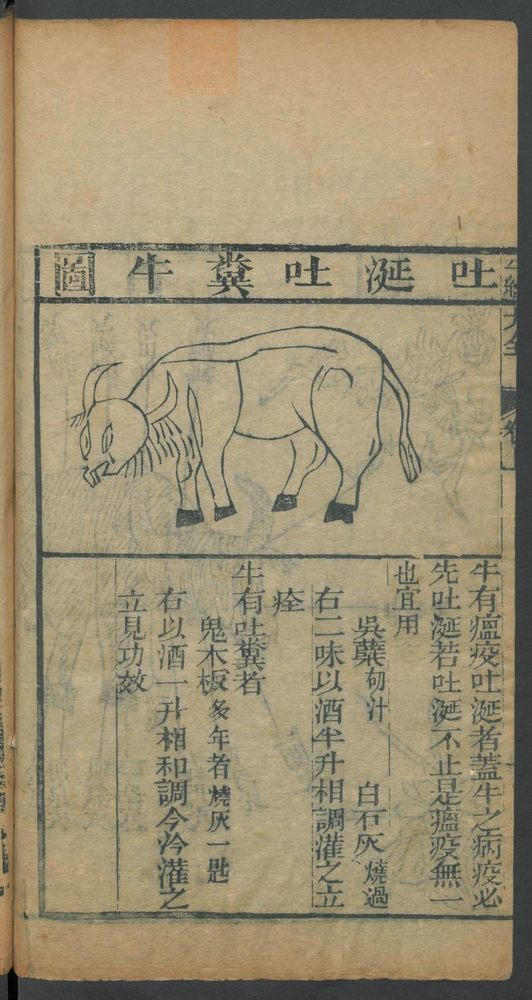 吐涎吐糞牛圖
牛有瘟疫吐涎者蓋牛之病疫必
先吐涎若吐涎不止是瘟疫無一
也宜用
吳藥 汁 白石灰燒過
右二味以酒半升相調灌之立
痊
牛有吐糞者
鬼木板多年者燒灰一匙
右以酒一升相和調令冷灌之
立見功效